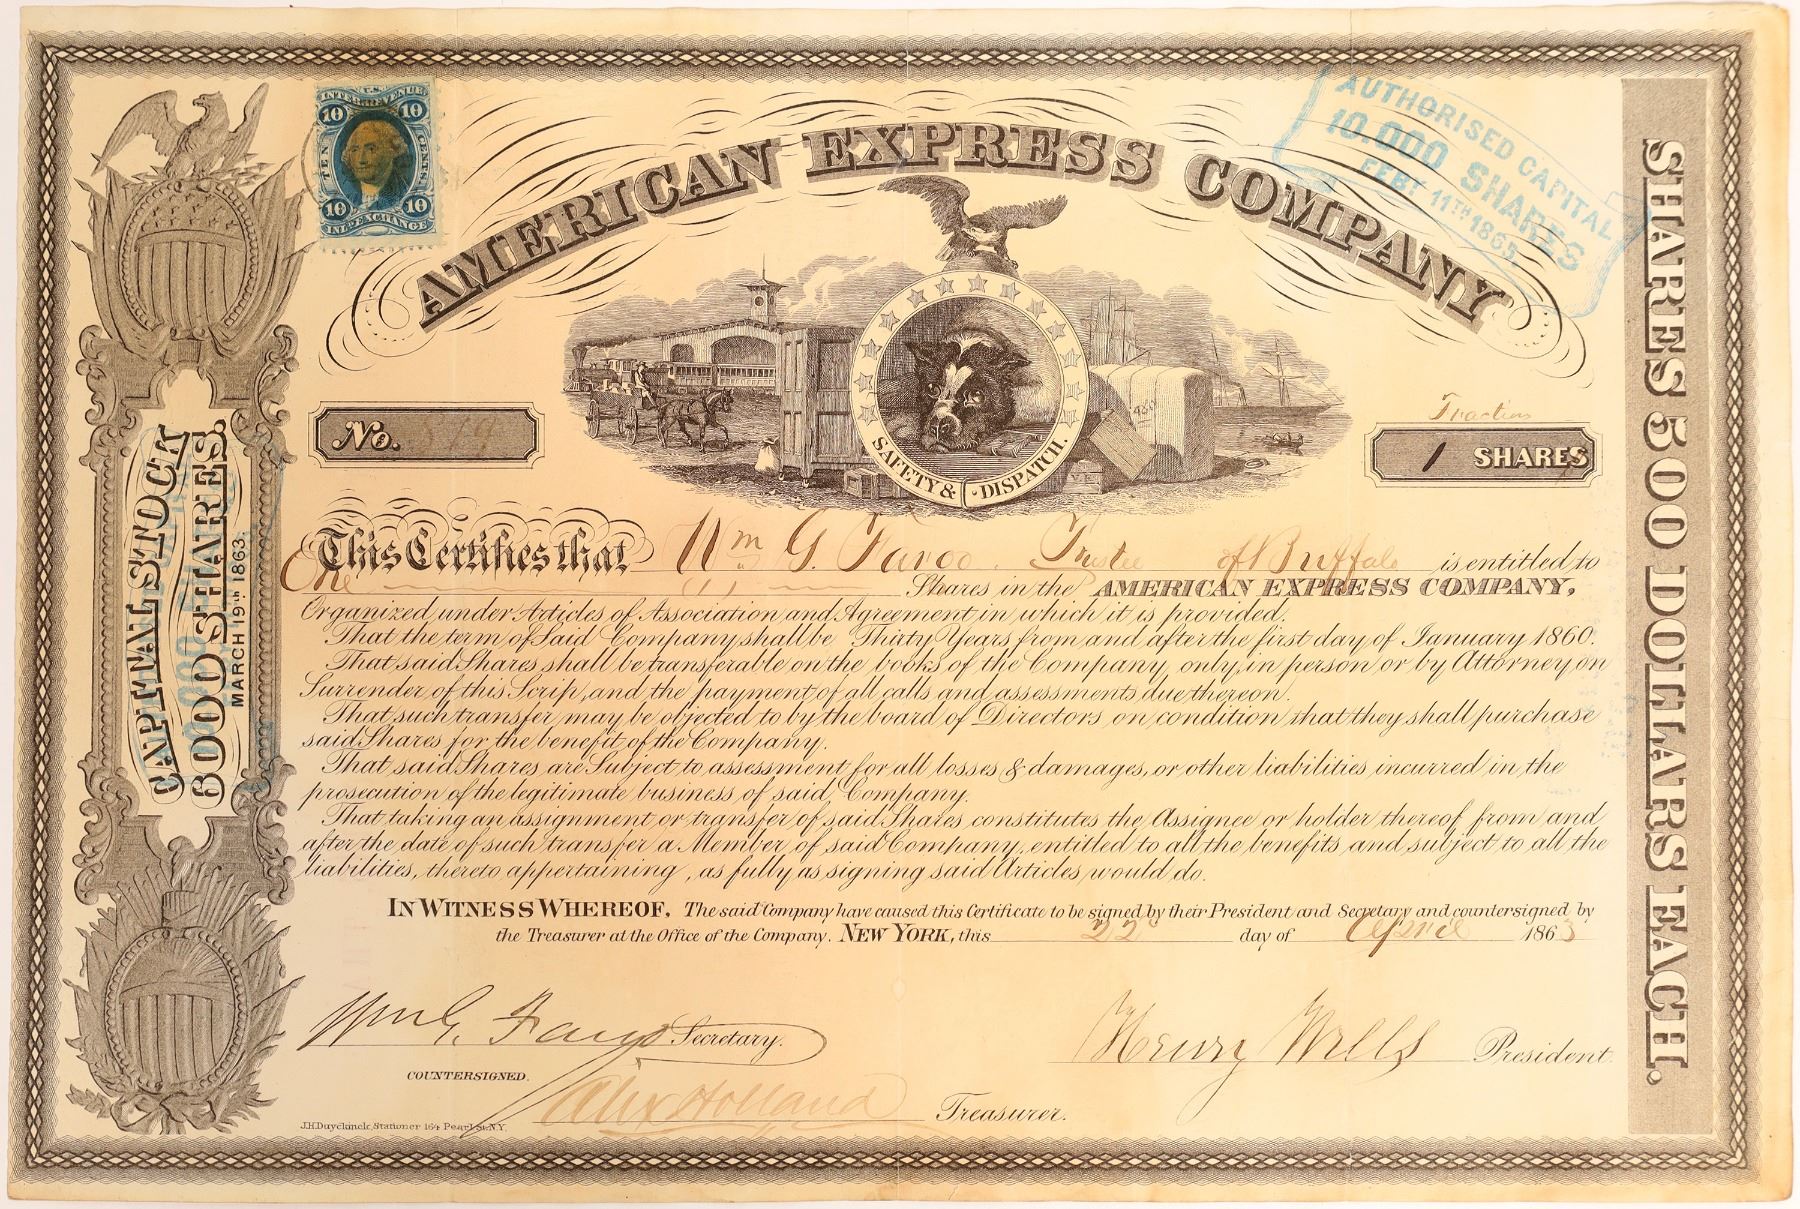 U.S.
INTER. REVENUE
10 10
TEN CENTS
10 10
INL'D EXCHANGE
AUTHORISED CAPITAL
10.000 SHARES
FEBY 11TH 1865.
AMERICAN EXPRESS COMPANY
SAFETY & DISPATCH.
No. 579
Fraction
1 SHARES
CAPITAL STOCK
6000 SHARES.
MARCH 19th 1863.
SHARES 500 DOLLARS EACH.
This Certifies that Wm G. Fargo. Trustee of Buffalo is entitled to
One Shares in the AMERICAN EXPRESS COMPANY,
Organized under Articles of Association and Agreement in which it is provided.
That the term of Said Company shall be Thirty Years from and after the first day of January 1860.
That said Shares shall be transferable on the books of the Company, only, in person or by Attorney on
Surrender of this Scrip, and the payment of all calls and assessments due thereon.
That such transfer may be objected to by the board of Directors on condition that they shall purchase
said Shares for the benefit of the Company.
That said Shares are Subject to assessment for all losses & damages, or other liabilities incurred in the
prosecution of the legitimate business of said Company.
That taking an assignment or transfer of said Shares constitutes the Assignee or holder thereof from and
after the date of such transfer a Member of said Company, entitled to all the benefits and subject to all the
liabilities, thereto appertaining, as fully as signing said Articles would do.
IN WITNESS WHEREOF, The said Company have caused this Certificate to be signed by their President and Secretary and countersigned by
the Treasurer at the Office of the Company. NEW YORK, this 22d day of April 1865
Wm G. Fargo Secretary.
Henry Wells President
COUNTERSIGNED.
Alex Holland Treasurer.
J.H. Duyckinck, Stationer 164 Pearl St. N.Y.